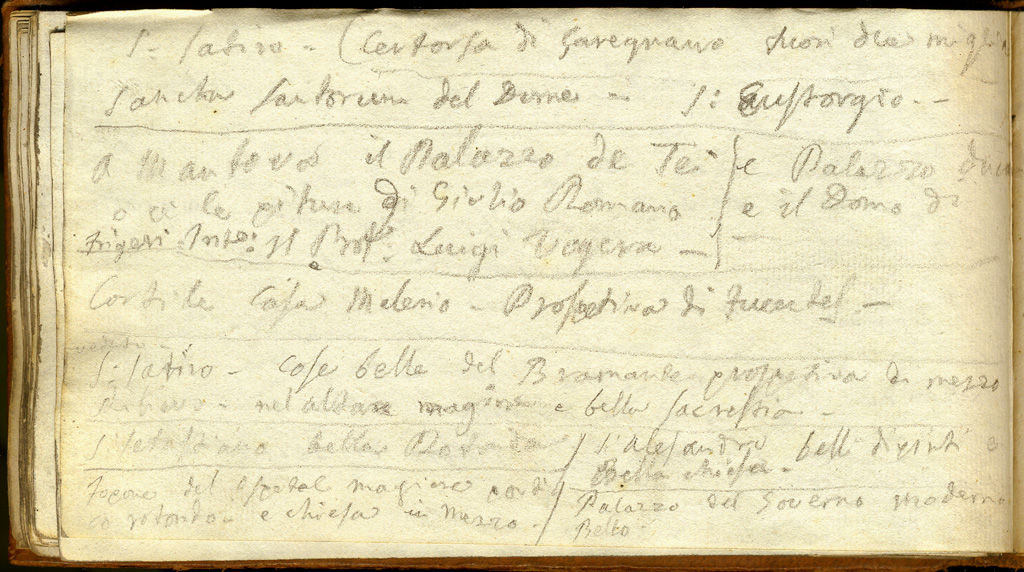 S. Satiro - (Certosa di Garegnano fuori due migli
Sancta Santorum del Dome - S: Eustorgio. -
A Mantova il Palazzo de Tei e Palazzo du
o ci le piture di Giulio Romano e il Domo di
Frigeri. Inte: il Prof.e Luigi Vogera -
Cortile Casa Malerio - Prospetiva di Fuentes -
S: Satiro - Cose belle del Bramante prospetiva di mezzo
nel altare magiore e bella sacrestia -
S: Sebastiano bella Rotonda
S: Alesandro belli dipinti e
Bella chiesa -
del Ospedal magiore
rotondo - e chiesa in mezzo. -
Palazzo del Governo moderno
Bello.